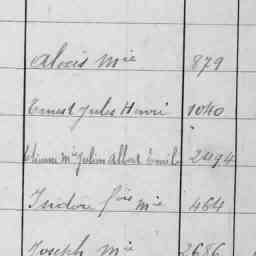 Alexis Mie 879
Ernest Jules Henri 1040
Etienne Mie Julien Albert Emile 2494
Isidore fois Mie 464
Joseph Mie 2686